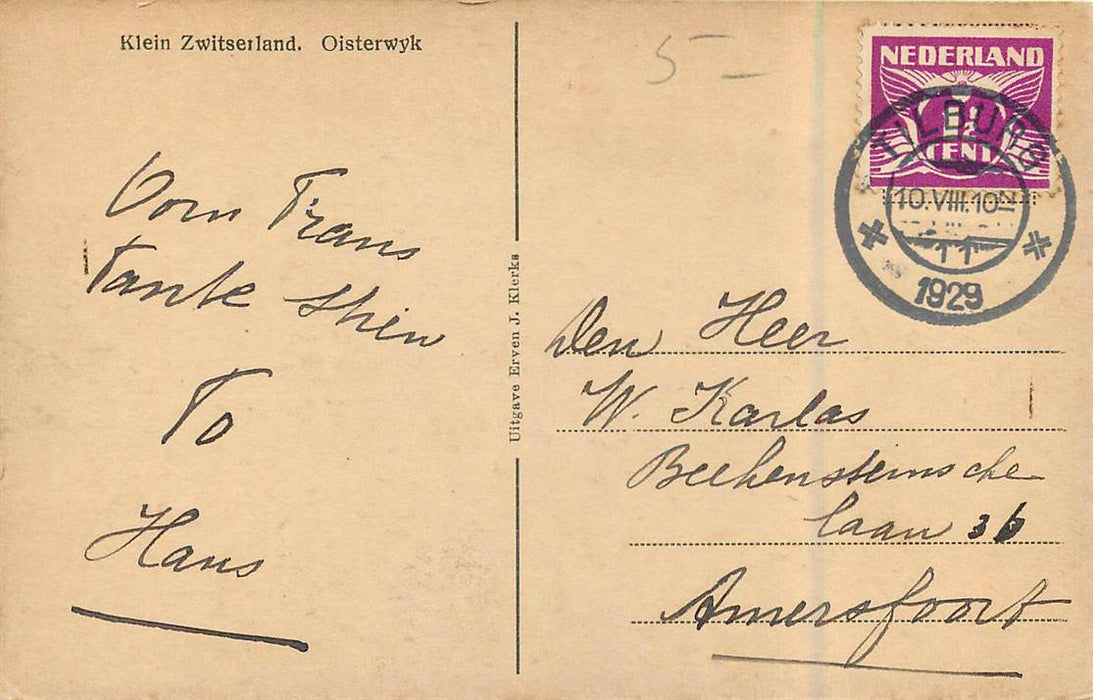 Klein Zwitserland. Oisterwyk
5 –
Oom Frans
Tante Stien
To
Hans
Uitgave Erven J. Klerks
NEDERLAND
1½
CENT
TILBURG
10.VIII.10
1929
Den Heer
W. Karlas
Beekensteinsche
laan 36
Amersfoort